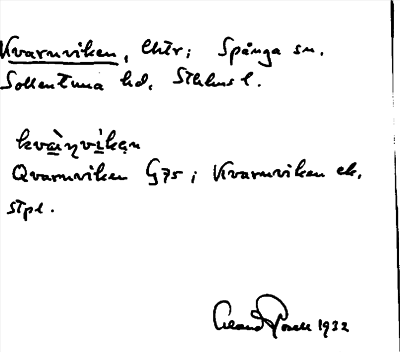 Kvarnviken, lhtr; Spånga sn.
Sollentuna hd, Sthlms l.
kvàɳvìkən
Qvarnviken G75; Kvarnviken ek.
stpl.
1932